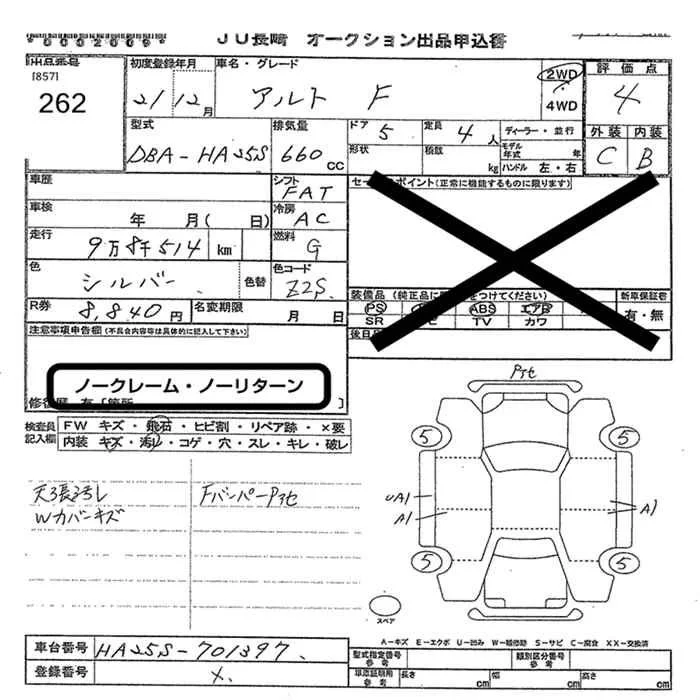 *0002009* JU長崎 オークション出品申込書
出品番号 初度登録年月 車名・グレード 2WD 評価点
[857]
262 21/12月 アルト F 4WD 4
型式 排気量 ドア 5 定員 4人 ディーラー・並行 外装 内装
DBA-HA25S 660cc 形状 積数 kg モデル年式 年 ハンドル 左・右 C B
車歴 シフト FAT セールスポイント(正常に機能するものに限ります)
車検 年 月( 日) 冷房 AC
走行 9万8千514 km 燃料 G
色 シルバー 色替 色コード Z2S
装備品 (純正品に つけてください) 新車保証書
R券 8,840円 名変期限 月 日 PS ABS エアB 有・無
SR TV カワ
注意事項申告欄(不具合内容等は具体的に記入して下さい)
ノークレーム・ノーリターン
修復歴 有 [箇所 ]
検査員記入欄 FW キズ・飛石・ヒビ割・リペア跡・×要
内装 キズ・汚レ・コゲ・穴・スレ・キレ・破レ
Fバンパー
Wカバーキズ
5 5
UA1
A1 A1
5 5
スペア
A-キズ E-エクボ U-凹み W-補修跡 S-サビ C-腐食 XX-交換済
車台番号 HA25S-701397 型式指定番号 参考 類別区分番号 参考
登録番号 車庫証明用 参考 長さ cm 幅 cm 高さ cm